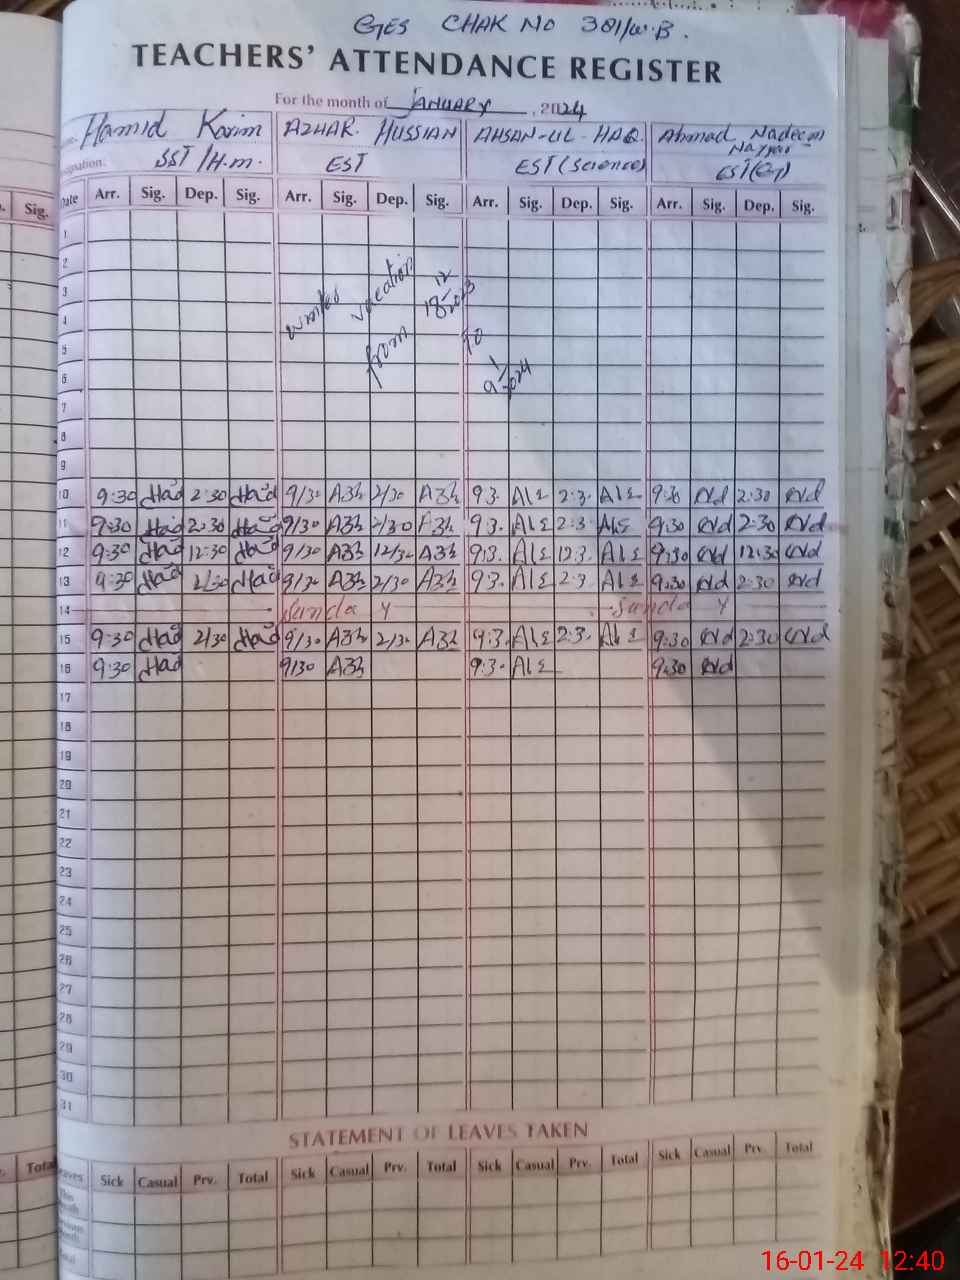 GES CHAK NO 301/W.B.
TEACHERS' ATTENDANCE REGISTER
For the month of JANUARY, 2024
Hamid Karim AZHAR HUSSIAN AHSAN-UL-HAQ Ahmad Nadeem
SST/H.m. EST EST (Science) EST
Date Arr. Sig. Dep. Sig. Arr. Sig. Dep. Sig. Arr. Sig. Dep. Sig. Arr. Sig. Dep. Sig.
Sig.
1
2
3
4
5
6
7
8
9
winter vacation
from 18-12-2023 To
9-1-2024
10 9:30 2:30 9/30 Azh 2/30 Azh 9:3. 2:3. 9:30 2:30
11 9:30 2:30 9/30 Azh 2/30 Azh 9:3. 2:3. 9:30 2:30
12 9:30 12:30 9/30 Azh 12/30 Azh 9:3. 12:3. 9:30 12:30
13 9:30 2/30 9/30 Azh 2/30 Azh 9:3. 2:3. 9:30 2:30
14 Sunday Sunday
15 9:30 2/30 9/30 Azh 2/30 Azh 9:3. 2:3. 9:30 2:30
16 9:30 9/30 Azh 9:3. 9:30
17
18
19
20
21
22
23
24
25
26
27
28
29
30
31
STATEMENT OF LEAVES TAKEN
Sick Casual Prv. Total Sick Casual Prv. Total Sick Casual Prv. Total Sick Casual Prv. Total
Total
16-01-24 12:40